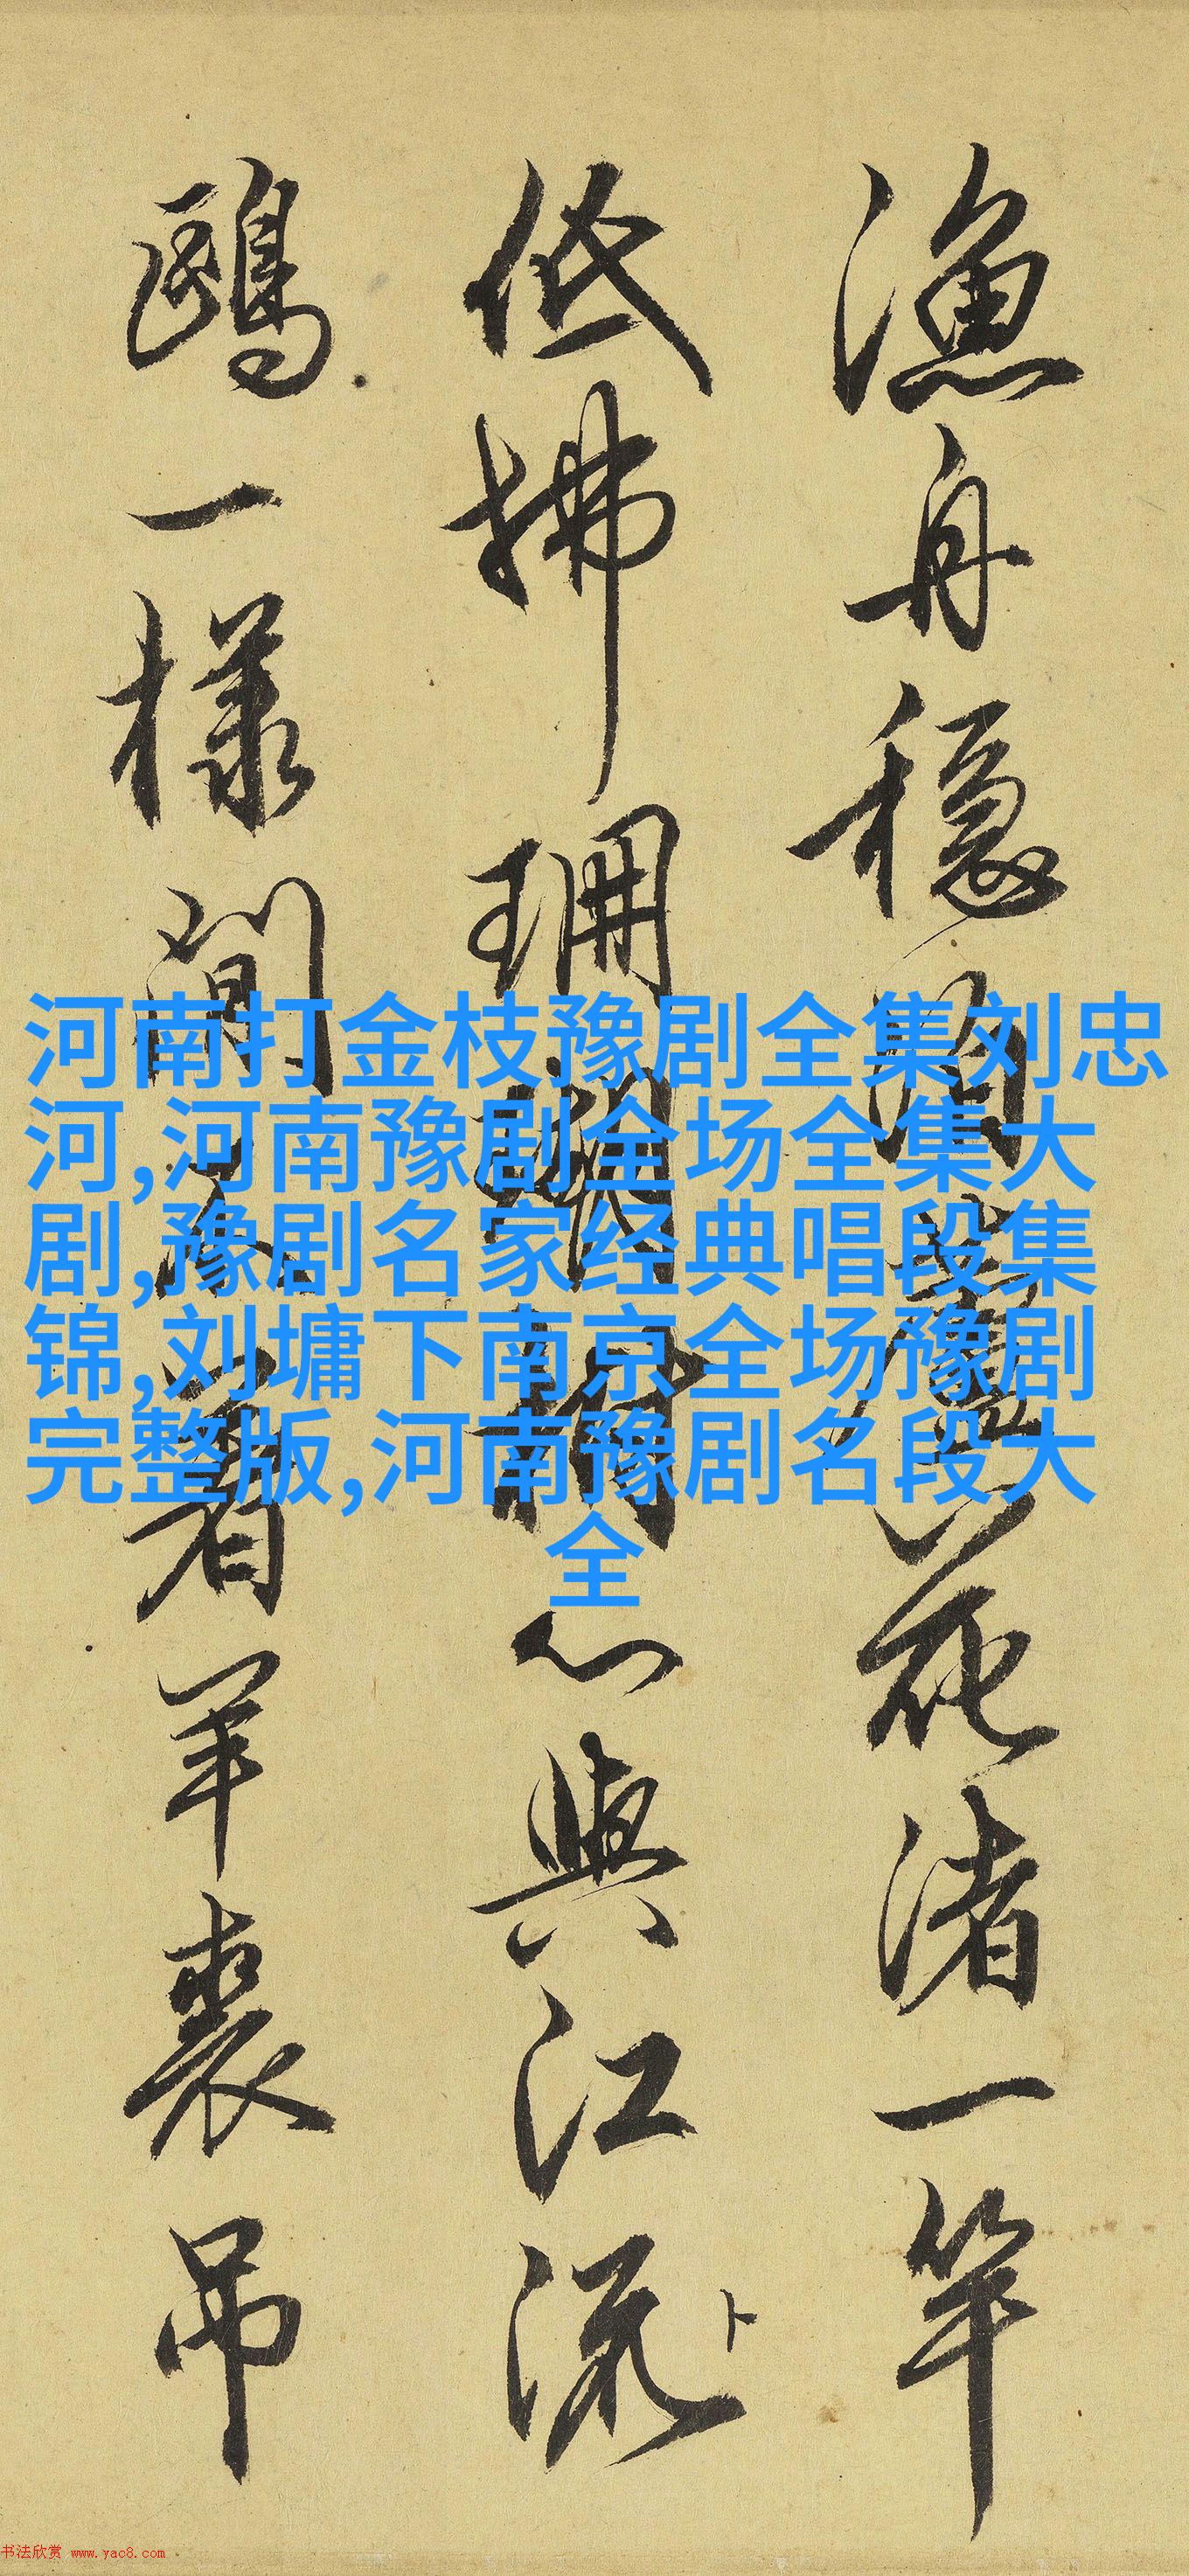 漁舟穩泊芦花渚一竿
低拂珊瑚樹心與江流
鷗一樣閒不着羊裘吊
河南打金枝豫剧全集刘忠
河,河南豫剧全场全集大
剧,豫剧名家经典唱段集
锦,刘墉下南京全场豫剧
完整版,河南豫剧名段大
全
书法欣赏 www.yac8.com